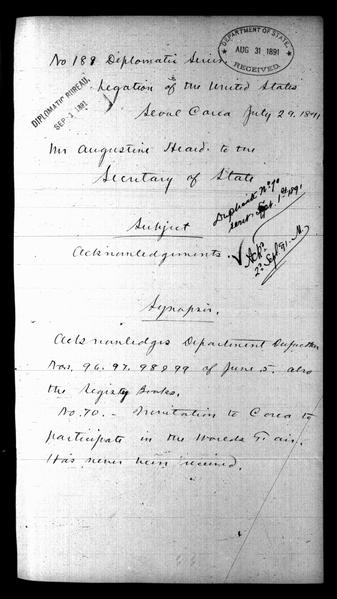 No 188 Diplomatic Series.
DEPARTMENT OF STATE,
AUG 31 1891
RECEIVED.
Legation of the United States
DIPLOMATIC BUREAU,
SEP 3 1891
Seoul Corea July 29. 1891
Mr Augustine Heard. to the
Secretary of State
Duplicate No 70
sent Sept. 1st 1891
Subject
Acknowledgments
Ack'd
2 Sept 91.
Synopsis.
Acknowledges Department Despatches
Nos. 96. 97. 98 & 99 of June 5. also
the Registry Books.
No. 70. - Invitation to Corea to
participate in the Worlds Fair.
Has never been received.